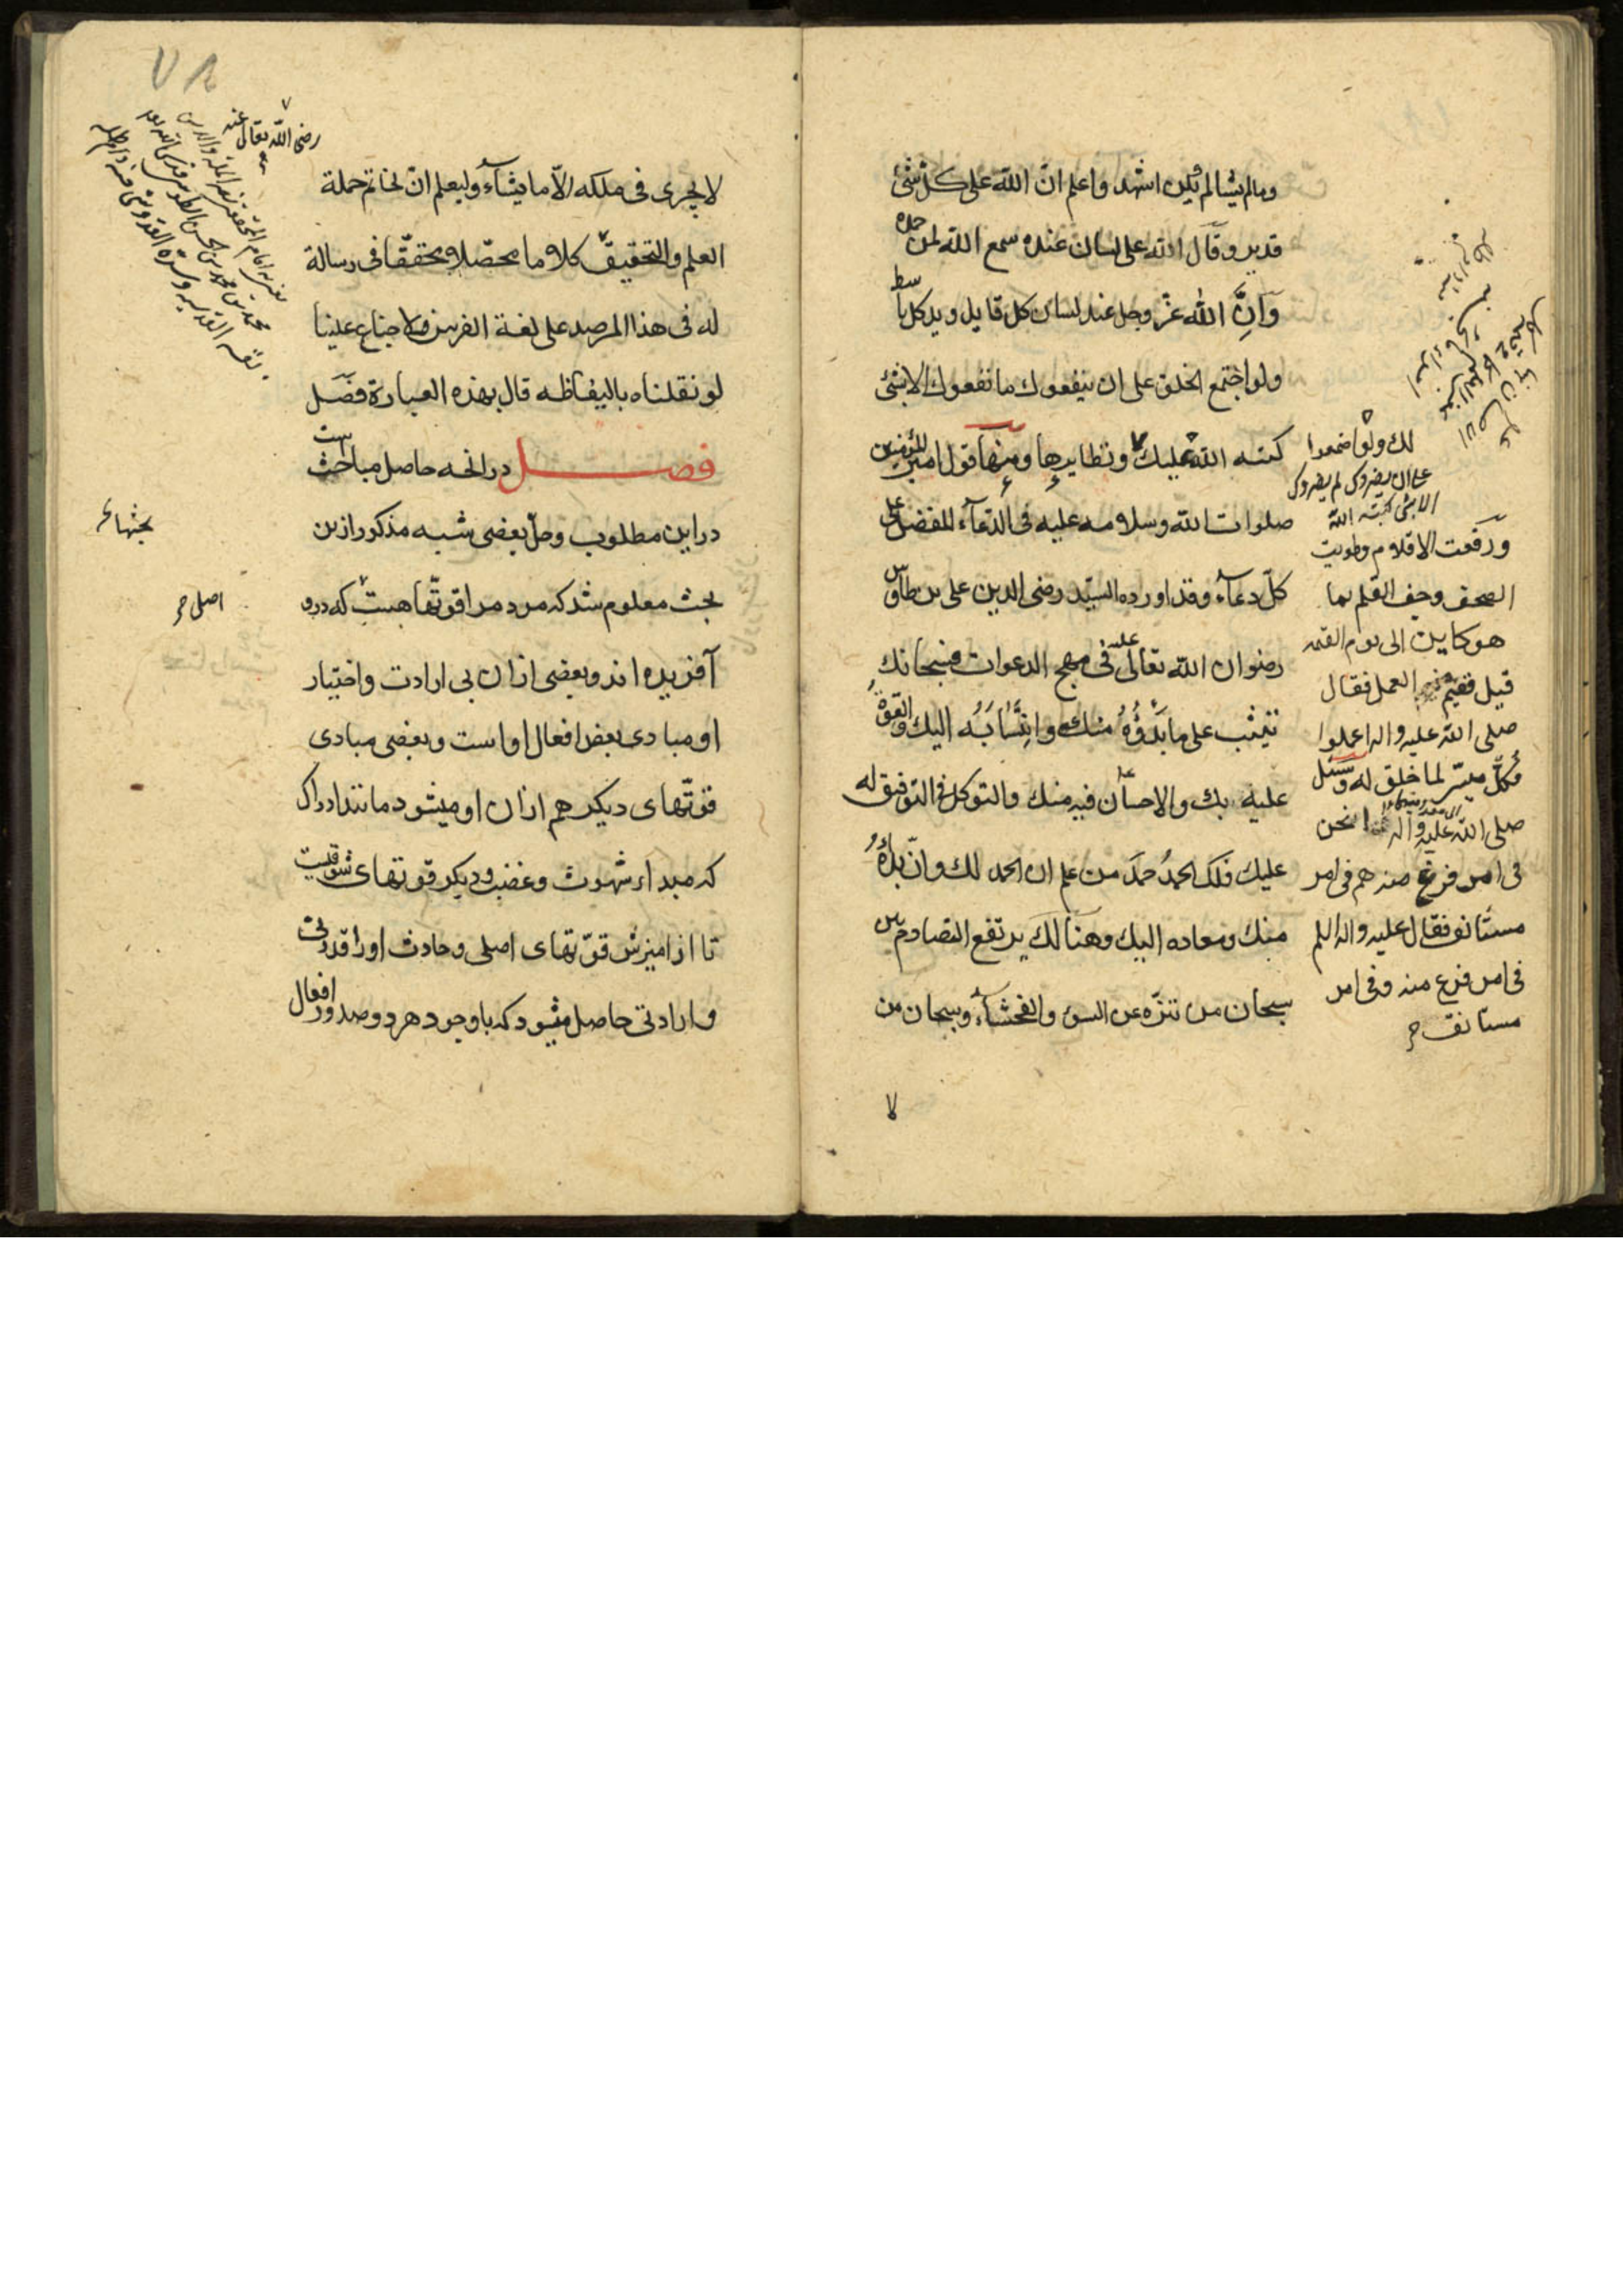 ومالم يشا لم يكن اشهد واعلم انّ الله على كل شئ
قدير وقال الله على لسان عبده سمع الله لمن حمده
وانّ الله عزّ وجل عند لسان كل قايل ويد كل باسط
ولو اجتمع الخلق على ان ينفعوك ما نفعوك الا بشئ
كتبه الله عليك ونظايرها ومنها قول امير المؤمنين
صلوات الله وسلامه عليه في الدعاء المفضل على
كلّ دعاء وقد اورده السيّد رضى الدين على بن طاوس
رضوان الله تعالى عليه فى مهج الدعوات فسبحانك
تثيب على ما بَدْؤُهُ منك وانتسابَهُ اليك والقوة
عليه بك والاحسان فيه منك والتوكل فى التوفيق له
عليك فلك الحمدُ حمدَ من علم ان الحمد لك وانّ بدأهُ
منك ومعاده اليك وهنالك يرتفع التصادم بين
سبحان من تنزّه عن السوء والفحشاء وسبحان من
لا
لك ولو اجتمعوا
على ان يضروك لم يضروك
الا بشئ كتبه الله
ورفعت الاقلام وطويت
الصحف وجف القلم بما
هو كاين الى يوم القيمه
قيل ففيم العمل فقال
صلى الله عليه واله اعملوا
فكلّ ميسّر لما خلق له وسئل
صلى الله عليه واله انحن
فى امر فرغ منه ام فى امر
مستانف فقال عليه واله السلم
فى امر فرغ منه وفى امر
مستانف
٧٨
رضى الله تعالى عنه
لا يجرى فى ملكه الاّ ما يشاء وليعلم انّ لخاتم حملة
العلم والتحقيق كلاما محصّلا ومحققّا فى رسالة
له فى هذا المرصد على لغة الفرس ولا جناح علينا
لو نقلناه بالفاظه قال بهذه العبارة فصَل
فصل درانچه حاصل مباحث است
دراين مطلوب وحلّ بعضى شبه مذكور ازين
بحث معلوم شد كه مردم را قوتّها هست كه درو
آفريده اند وبعضى ازان بى ارادت واختيار
او مبادى بعض افعال اواست وبعضى مبادى
قوتّهاى ديكر هم ازان او ميشود مانند ادراك
كه مبداء شهوت وغضب وديكر قوتهاى شوقيست
تا از اميزش قوّتهاى اصلى وحادث اورا قدرتى
وارادتى حاصل ميشود كه با وجود هردو صدور افعال
بحثها
اصلى